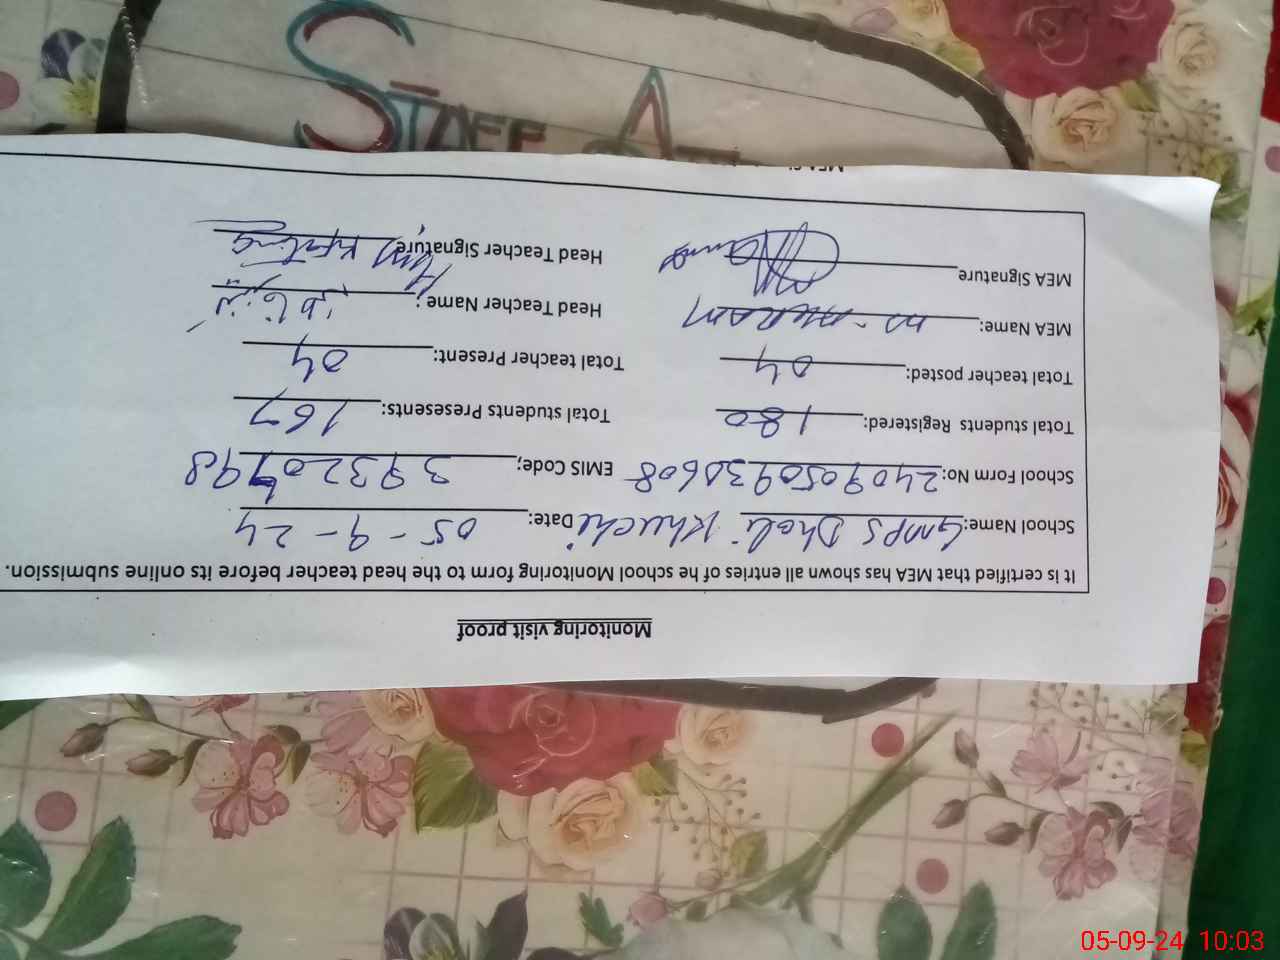 STAFF
Monitoring visit proof
It is certified that MEA has shown all entries of he school Monitoring form to the head teacher before its online submission.
School Name: GMPS Dhali Khuchi Date: 05-9-24
School Form No: 24090509 EMIS Code; 37320498
Total students Registered: 180 Total students Presesents: 167
Total teacher posted: 04 Total teacher Present: 04
MEA Name: M. Akram Head Teacher Name:
MEA Signature Head Teacher Signature
05-09-24 10:03